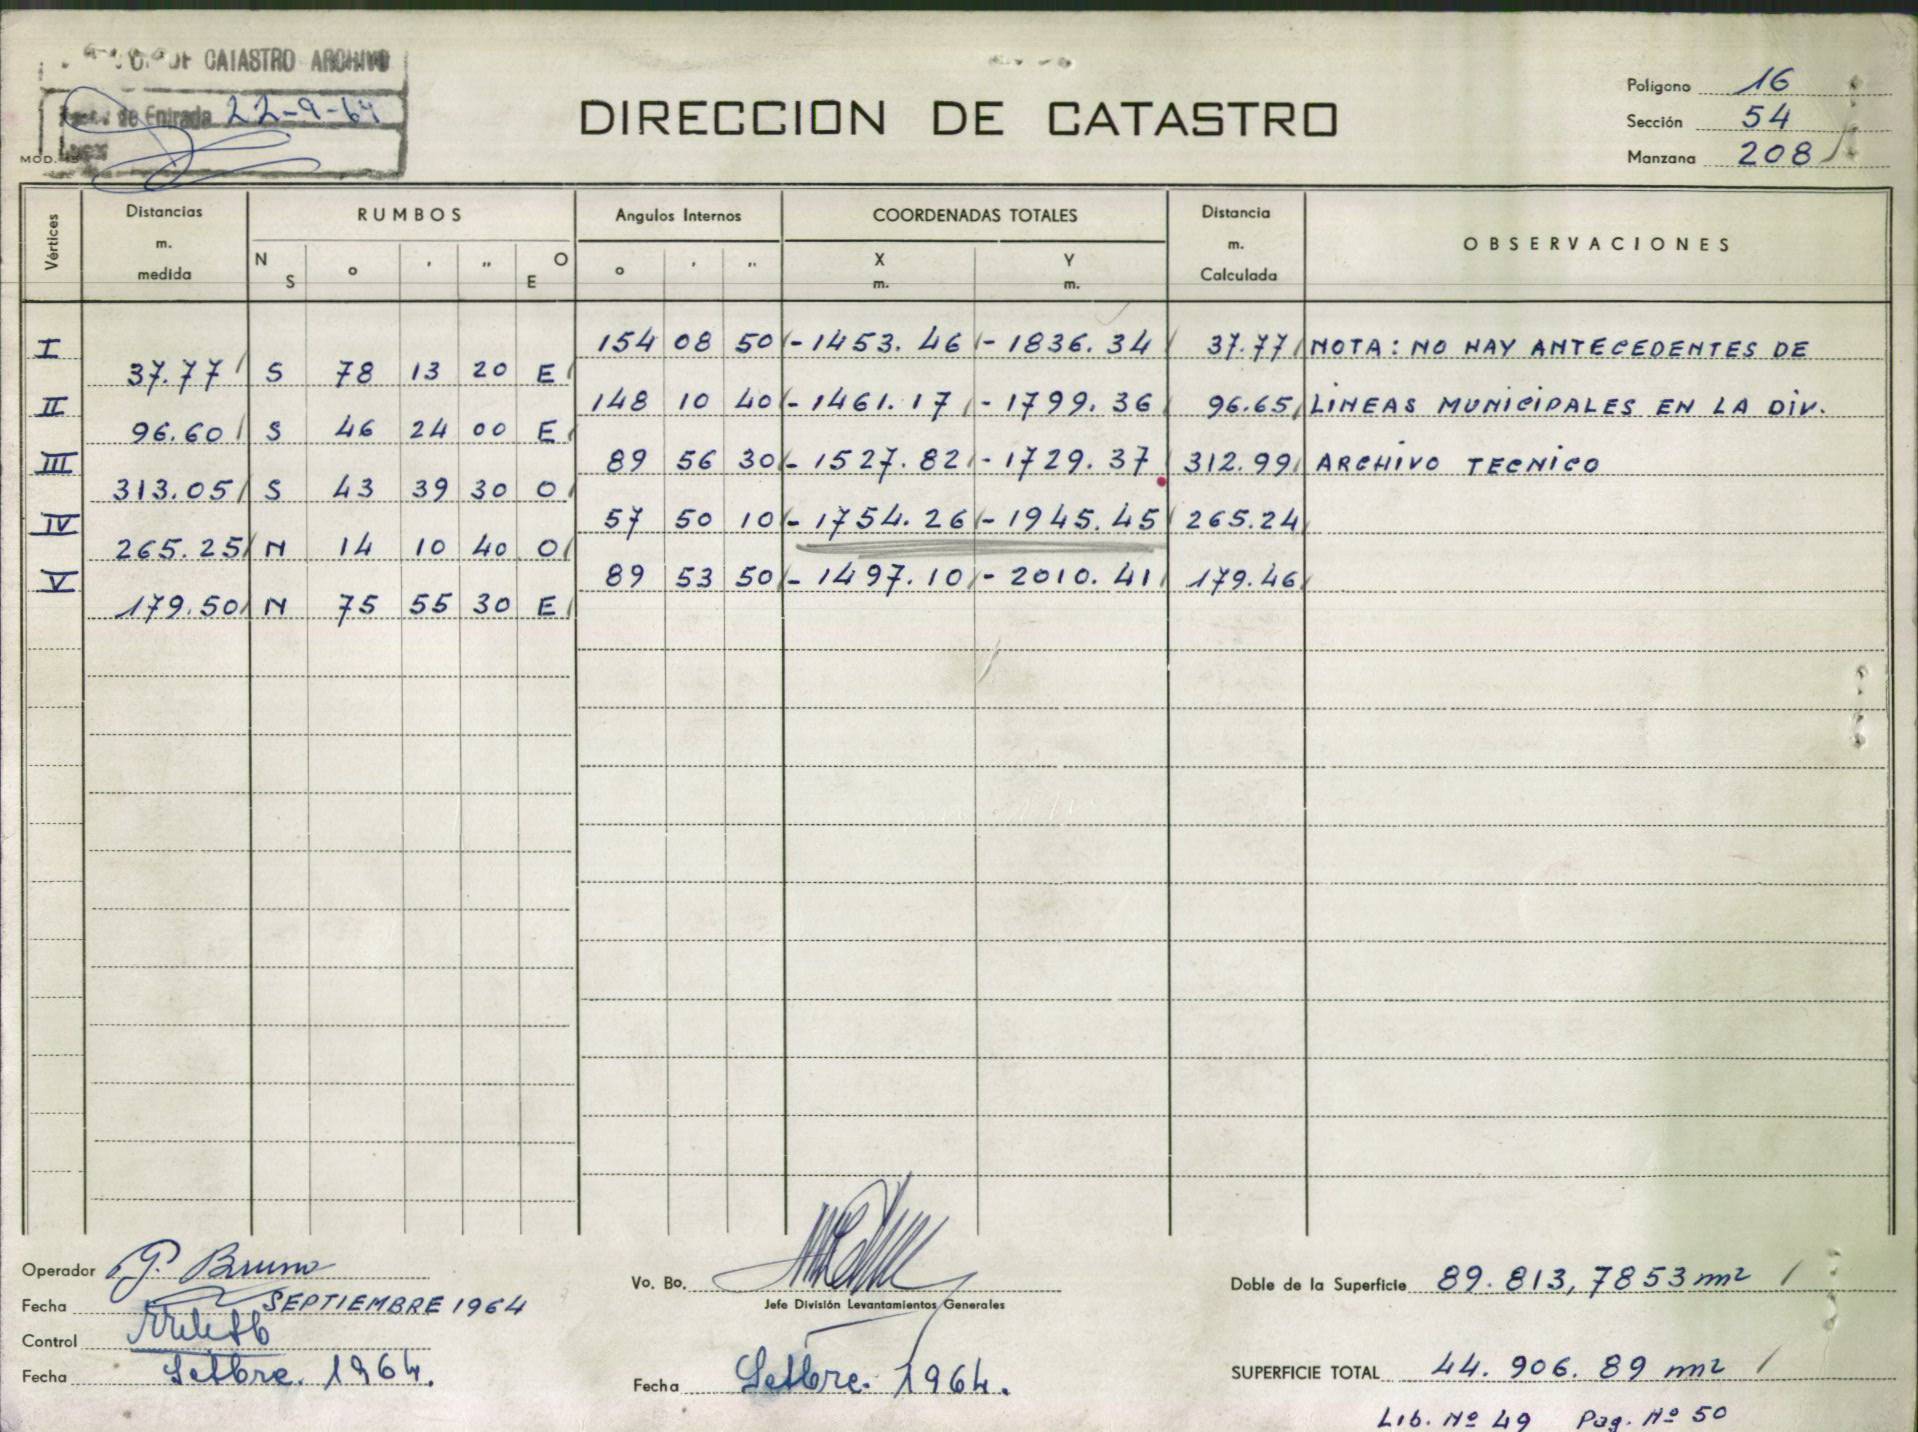 DE CATASTRO ARCHIVO
de Entrada 22-9-64
MOD.
DIRECCION DE CATASTRO
Polígono 16
Sección 54
Manzana 208
Vértices
Distancias m. medida
RUMBOS
N S ° ' " O E
Angulos Internos
° ' "
COORDENADAS TOTALES
X m. Y m.
Distancia m. Calculada
OBSERVACIONES
I 154 08 50 -1453.46 -1836.34 37.77 NOTA: NO HAY ANTECEDENTES DE
37.77 S 78 13 20 E
II 148 10 40 -1461.17 -1799.36 96.65 LINEAS MUNICIPALES EN LA DIV.
96.60 S 46 24 00 E
III 89 56 30 -1527.82 -1729.37 312.99 ARCHIVO TECNICO
313.05 S 43 39 30 O
IV 57 50 10 -1754.26 -1945.45 265.24
265.25 N 14 10 40 O
V 89 53 50 -1497.10 -2010.41 179.46
179.50 N 75 55 30 E
Operador G. Bruno
Fecha SEPTIEMBRE 1964
Control
Fecha Setbre. 1964.
Vo. Bo.
Jefe División Levantamientos Generales
Fecha Setbre. 1964.
Doble de la Superficie 89.813,7853 m²
SUPERFICIE TOTAL 44.906.89 m²
Lib. Nº 49 Pag. Nº 50